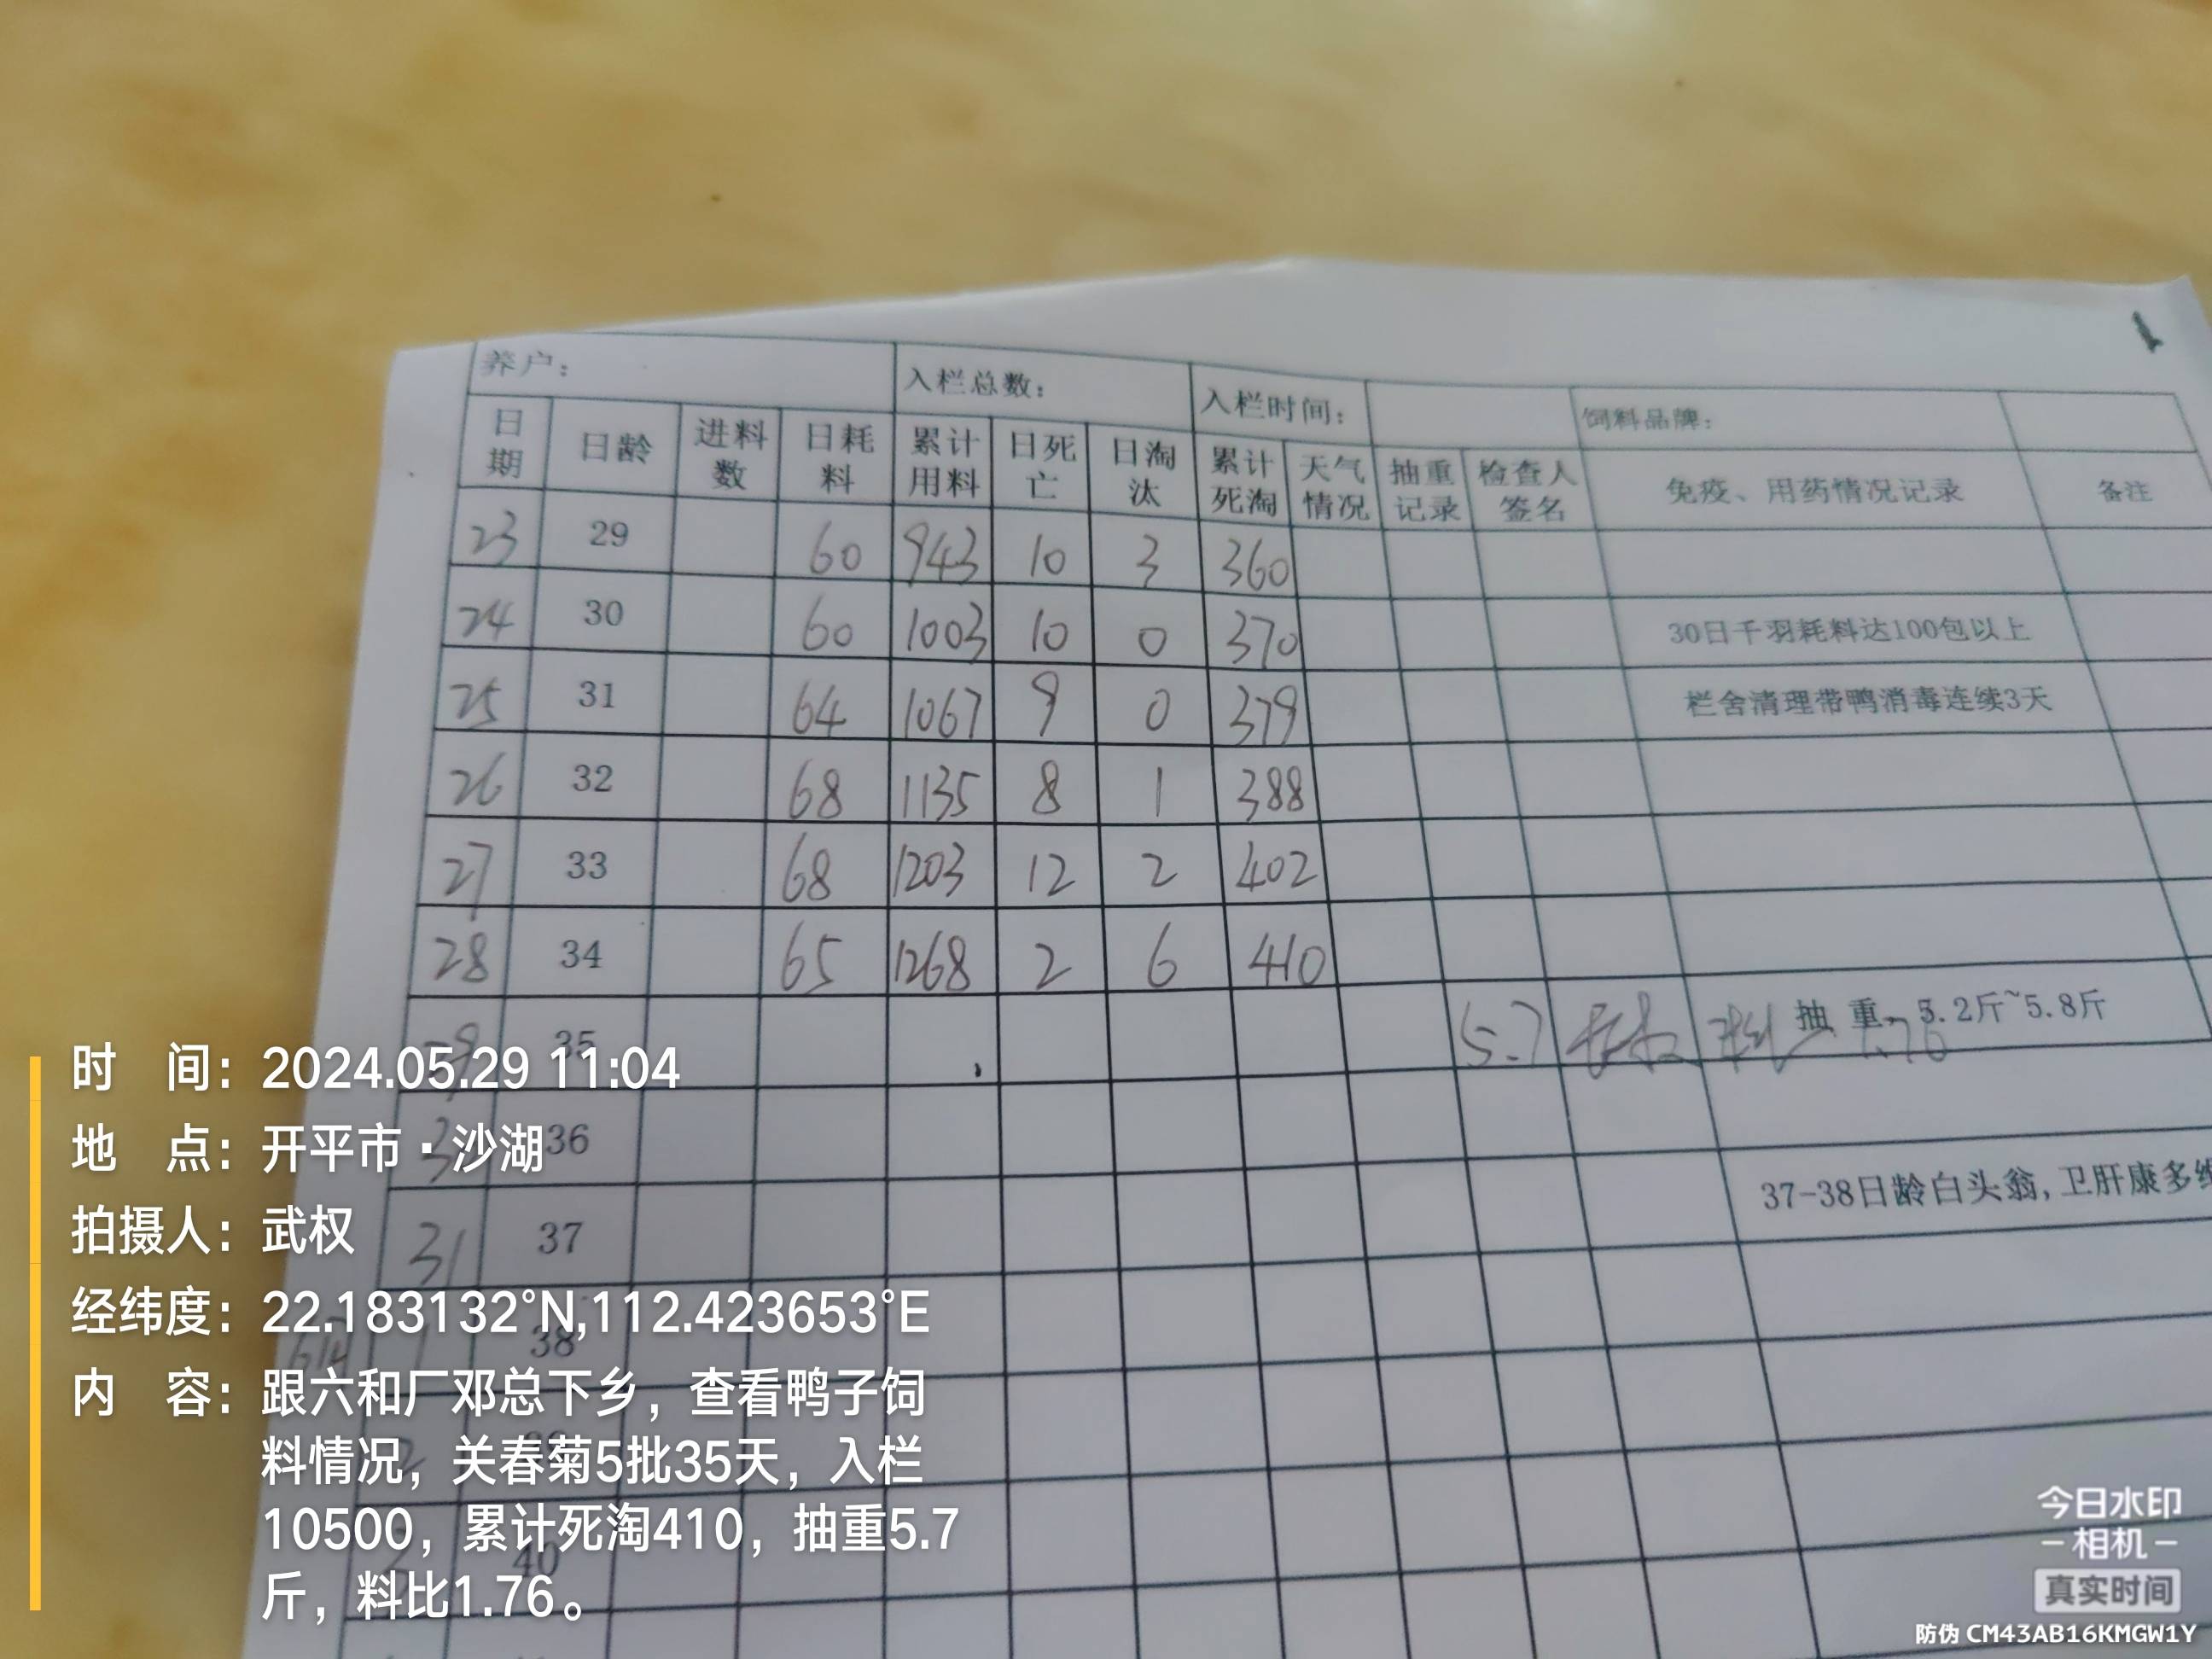 养户： 入栏总数： 入栏时间： 饲料品牌：
日期 日龄 进料数 日耗料 累计用料 日死亡 日淘汰 累计死淘 天气情况 抽重记录 检查人签名 免疫、用药情况记录 备注
23 29 60 943 10 3 360
24 30 60 1003 10 0 370 30日千羽耗料达100包以上
25 31 64 1067 9 0 379 栏舍清理带鸭消毒连续3天
26 32 68 1135 8 1 388
27 33 68 1203 12 2 402
28 34 65 1268 2 6 410
35 5.7 抽 重 5.2斤~5.8斤
1.76
36
31 37 37-38日龄白头翁,卫肝康多维
38
40
时 间：2024.05.29 11:04
地 点：开平市·沙湖
拍摄人：武权
经纬度：22.183132°N,112.423653°E
内 容：跟六和厂邓总下乡，查看鸭子饲
料情况，关春菊5批35天，入栏
10500，累计死淘410，抽重5.7
斤，料比1.76。
今日水印
-相机-
真实时间
防伪 CM43AB16KMGW1Y